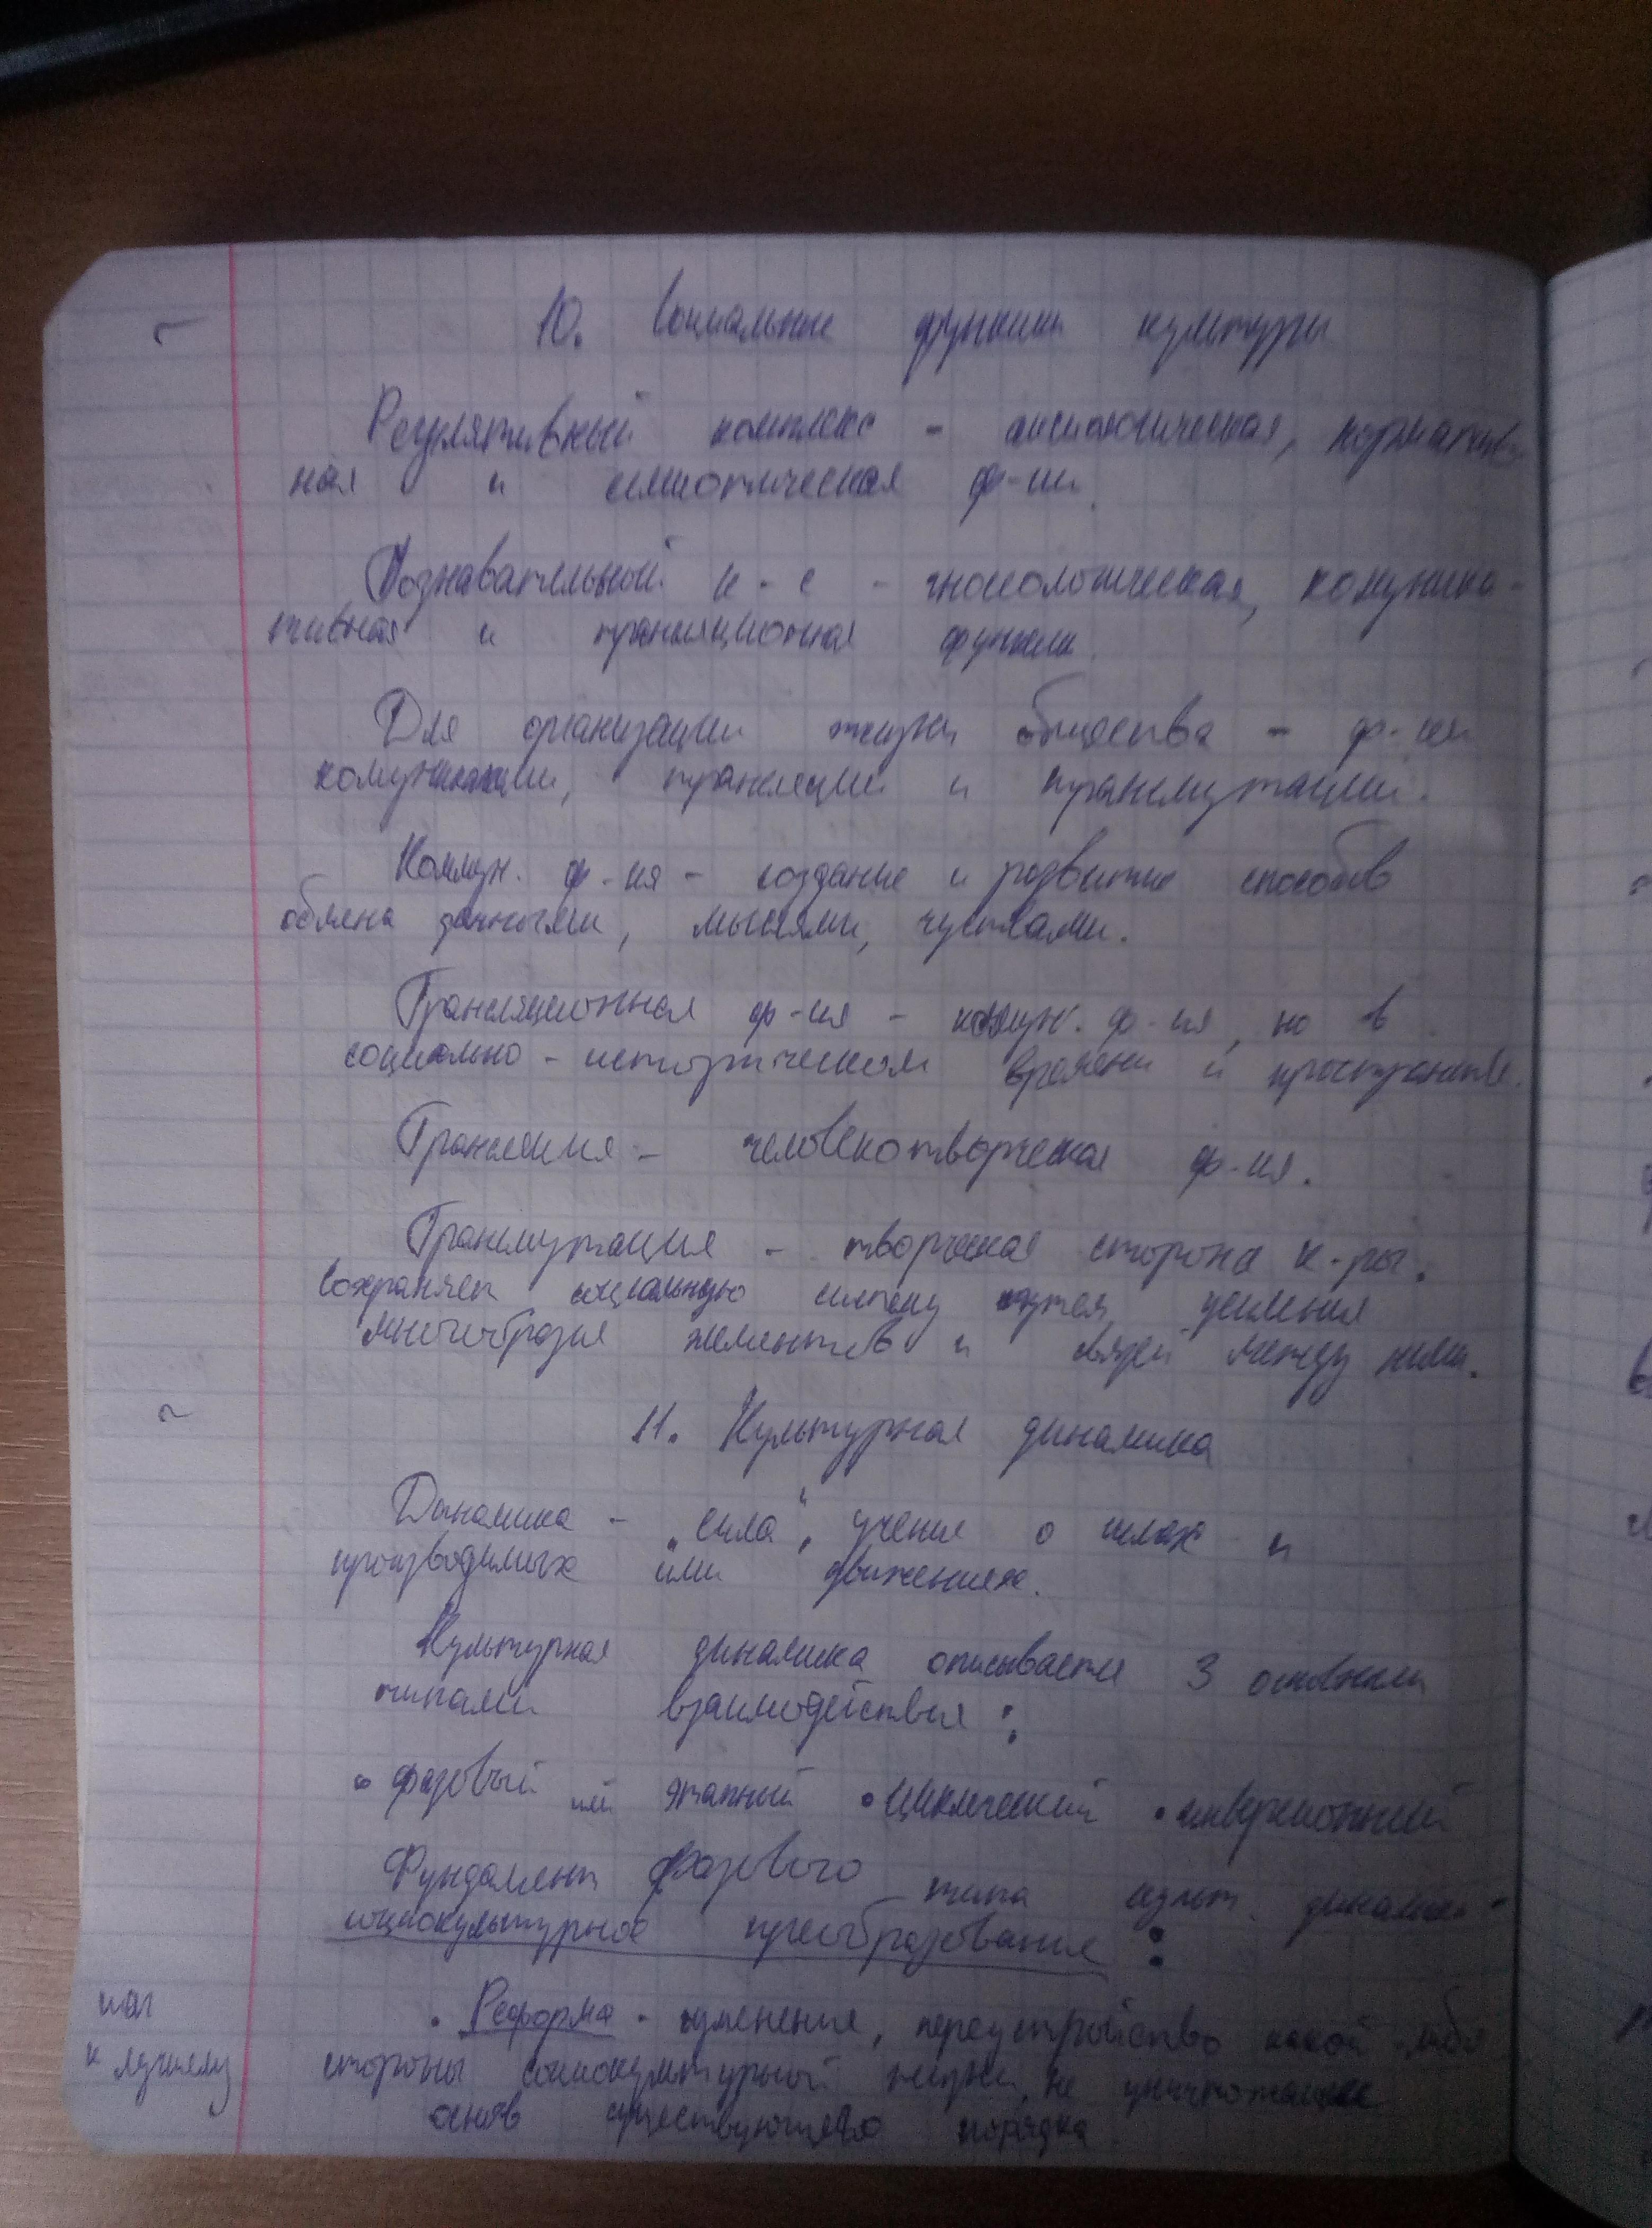 10. Социальные функции культуры
Регулятивный комплекс - аксиологическая, норматив-
ная и семиотическая ф-ии.
Познавательный к-с - гносеологическая, комуника-
тивная и трансляционная функции.
Для организации жизни общества - ф-ии
комуникации, трансляции и трансмутации.
Коммун. ф-ия - создание и развитие способов
обмена данными, мыслями, чуствами.
Трансляционная ф-ия - коммун. ф-ия, но в
социально-историческом времени и пространстве.
Трансляция - человекотворческая ф-ия.
Трансмутация - творческая сторона к-ры.
Сохраняет социальную систему путем усиления
многообразия элементов и связей между ними.
11. Культурная динамика
Динамика - "сила", учение о силах и
производимых ими движениях.
Культурная динамика описывается 3 основными
типами взаимодействия:
• фазовый или этапный • циклический • инверсионный
Фундамент фазового типа культ. динамики -
социокультурное преобразование:
шаг • Реформа - изменение, переустройство какой-либо
к лучшему стороны социокультурной жизни, не уничтожающее
основ существующего порядка